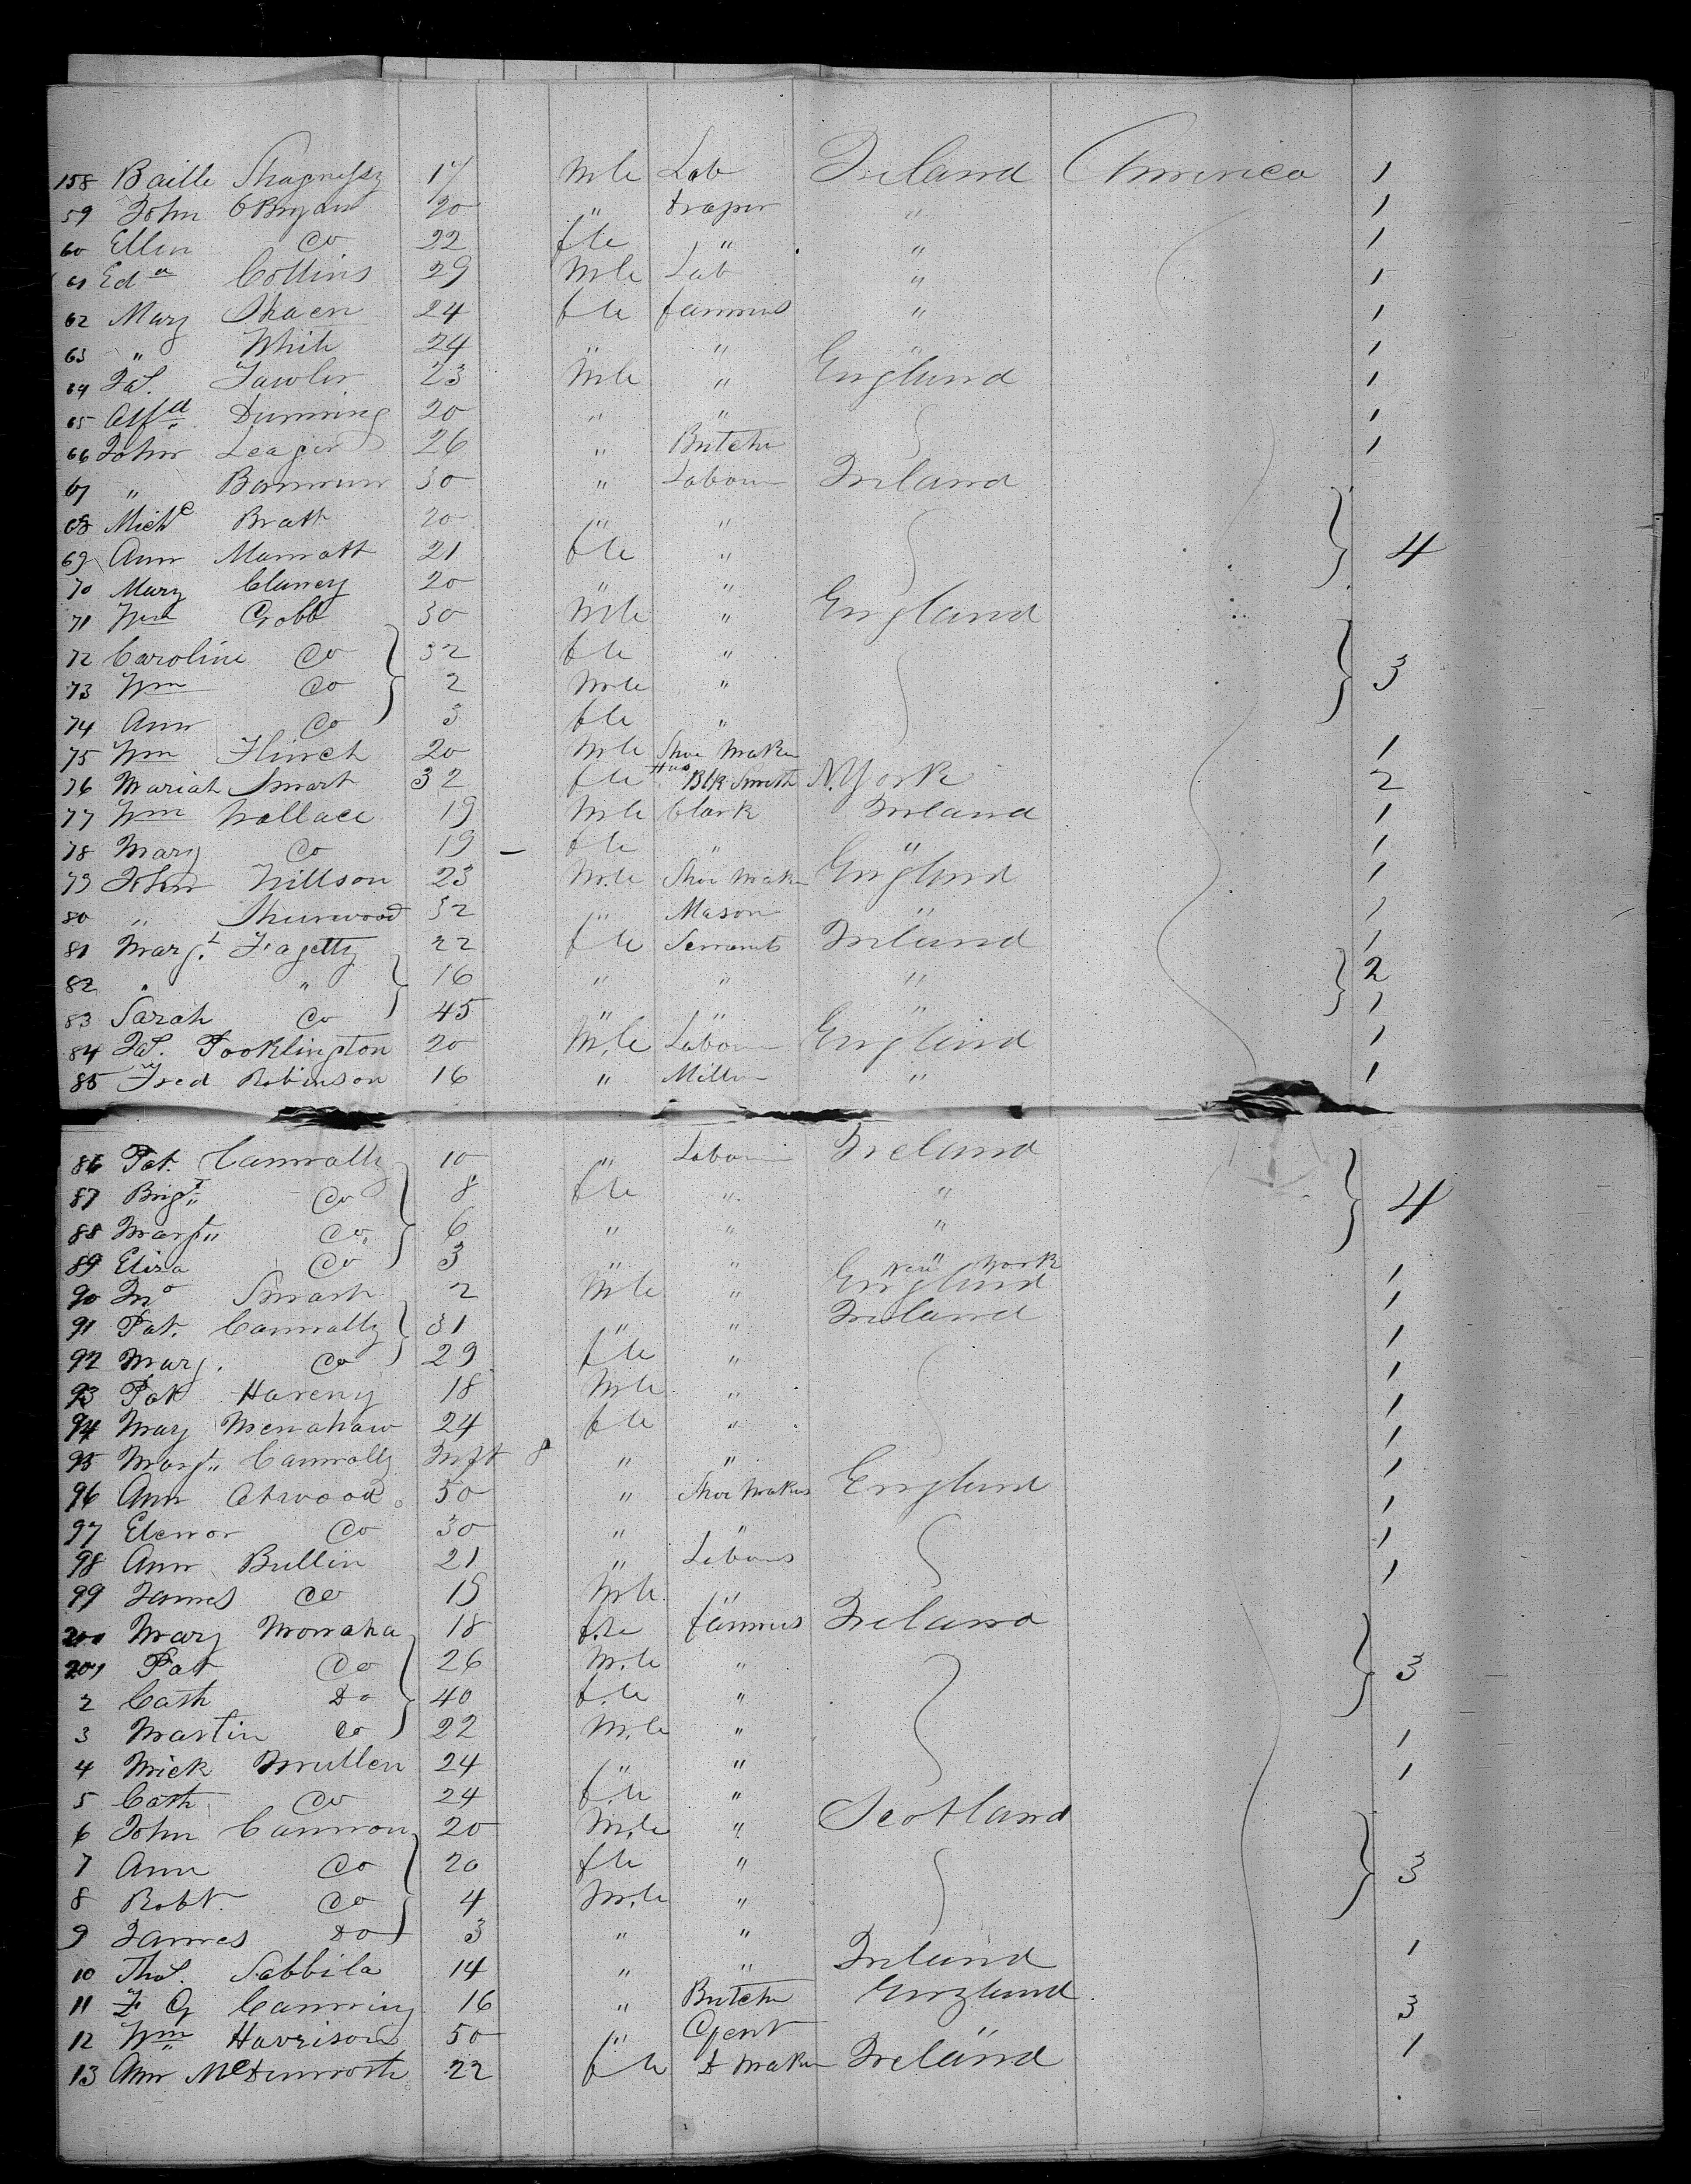 158 Baille Shagnessy 17 Mle Lab Ireland America 1
59 John OBryan 20 " draper " 1
60 Ellen Do 22 fle " " 1
61 Edd Collins 29 Mle Lab " 1
62 Mary Shaen 24 fle farmers " 1
63 " White 24 " " " 1
64 Jas. Fawler 23 Mle " England 1
65 Alfd. Dunning 20 " " 1
66 John Leager 26 " Butcher 1
67 " Bammon 30 " Labour Ireland
68 Michl Bratt 20 " " } 4
69 Ann Marratt 21 fle "
70 Mary Clancy 20 " "
71 Wm Cobb 30 Mle " England
72 Caroline Do 32 fle "
73 Wm Do 2 Mle " } 3
74 Ann Do 3 fle "
75 Wm Flinch 20 Mle Shoe Maker 1
76 Mariah Smart 32 fle Hus Blk Smith N. York 2
77 Wm Wallace 19 Mle Clark Ireland 1
78 Mary Do 19 – fle " " 1
79 John Willson 23 Mle Shoe Maker England 1
80 " Shurwood 32 " Mason " 1
81 Margt. Fagetty 22 fle Servants Ireland 1
82 " " 16 " " " } 2
83 Sarah Do 45 " " " 1
84 Jas. Pooklington 20 Mle Labour England 1
85 Fred Robinson 16 " Miller " 1
86 Pat. Cannolly 10 " Labour Ireland
87 Brigt" Do 8 fle " " } 4
88 Margt" Do 6 " " "
89 Eliza Do 3 " " " New York
90 Jno Smart 2 Mle " England 1
91 Pat. Cannolly 31 " " Ireland 1
92 Marg. Do 29 fle " 1
93 Pat Hareny 18 Mle " 1
94 Mary Menahaw 24 fle " 1
95 Margt" Cannolly Inft 8 " " 1
96 Ann Atwood 50 " Shoe Makers England 1
97 Elenor Do 30 " " 1
98 Ann Bullin 21 " Labours 1
99 James Do 19 Mle " 1
200 Mary Monaha 18 fle farmers Ireland
201 Pat Do 26 Mle " } 3
2 Cath Do 40 fle "
3 Martin Do 22 Mle " 1
4 Mick Mullen 24 " " 1
5 Cath Do 24 fle "
6 John Cannon 20 Mle " Scotland
7 Ann Do 20 fle " } 3
8 Robt. Do 4 Mle "
9 James Do 3 " "
10 Thos. Sabbila 14 " " Ireland 1
11 F G Canning 16 " Butcher England
12 Wm Harrison 50 " Gent " 3
13 Ann McDermoth 22 fle D Maker Ireland 1